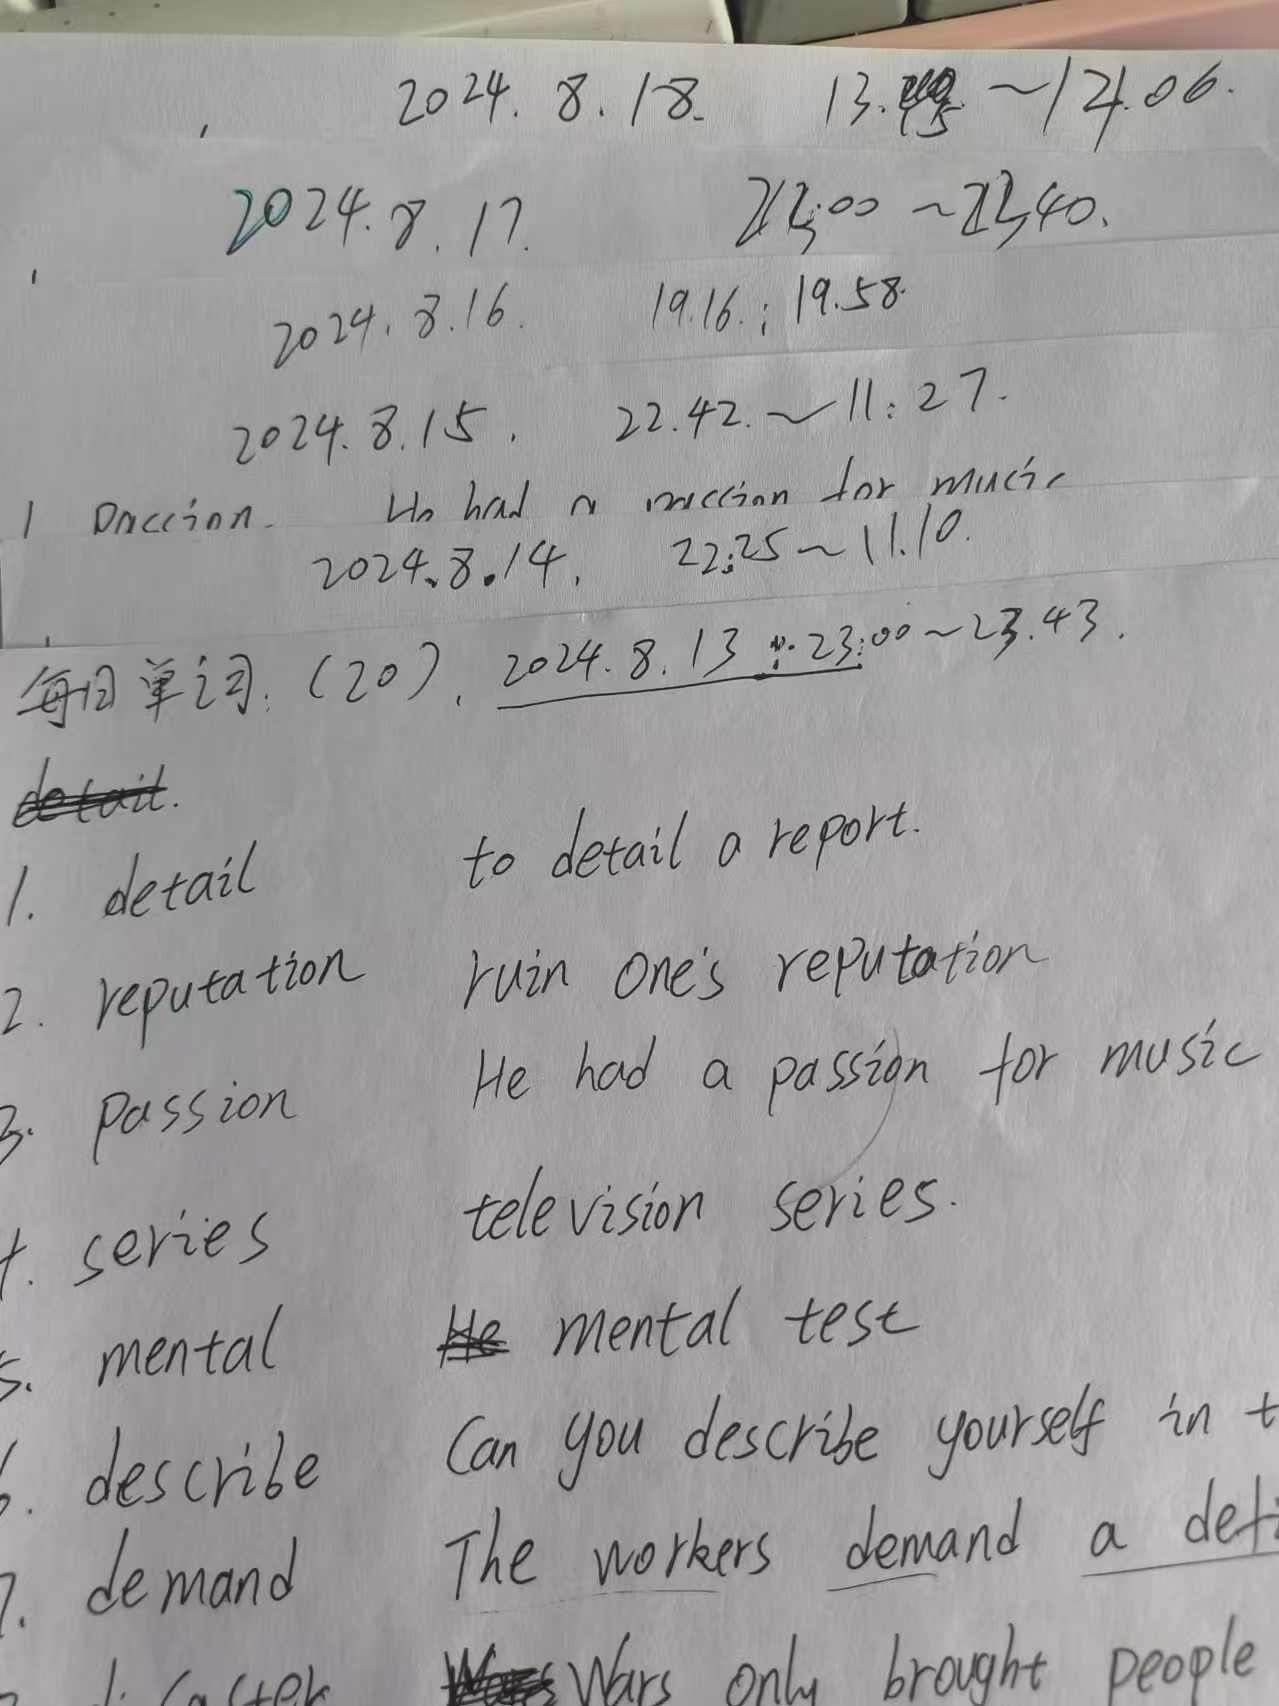 2024. 8. 18. 13. 45 ~ 14.06.
2024.8.17.
2024.8.16. 19.16.; 19.58.
2024.8.15. 22.42. ~ 11:27.
1 Passion. He had a passion for music
2024.8.14. 22:25 ~ 11.10.
每日单词:(20). 2024.8.13 : 23:00 ~ 23.43.
detail.
1. detail to detail a report.
2. reputation ruin one's reputation
3. passion He had a passion for music
4. series television series.
5. mental He mental test
6. describe Can you describe yourself in t
7. demand The workers demand a deti
disaster Wars only brought people